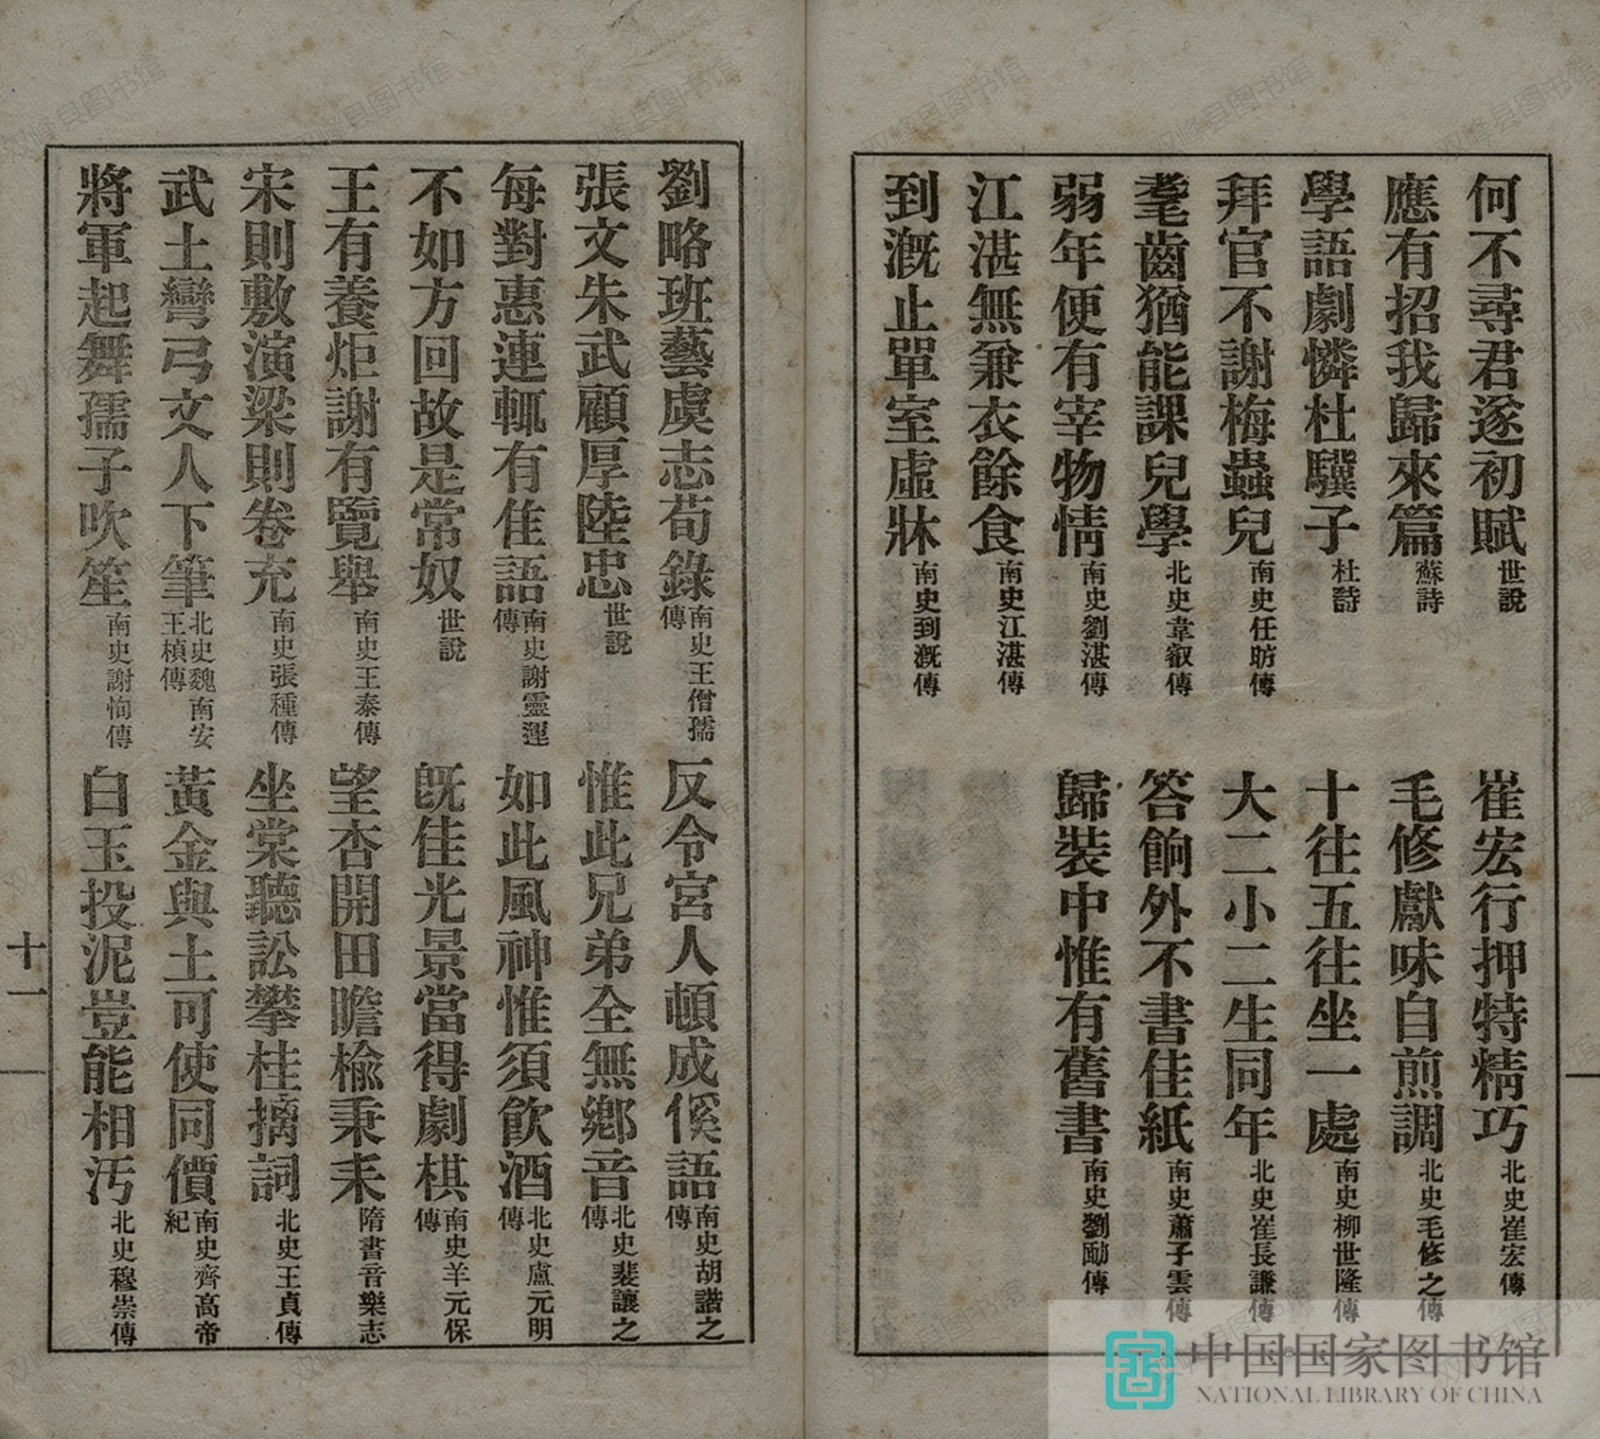 何不尋君遂初賦世說
崔宏行押特精巧北史崔宏傳
應有招我歸來篇蘇詩
毛修獻味自煎調北史毛修之傳
學語劇憐杜驥子杜詩
十往五往坐一處南史柳世隆傳
拜官不謝梅蟲兒南史任昉傳
大二小二生同年北史崔長謙傳
耄齒猶能課兒學北史韋叡傳
答餉外不書佳紙南史蕭子雲傳
弱年便有宰物情南史劉湛傳
歸裝中惟有舊書南史劉勔傳
江湛無兼衣餘食南史江湛傳
到溉止單室虛牀南史到溉傳
劉略班藝虞志荀錄南史王僧孺傳
反令宮人頓成傒語南史胡諧之傳
張文朱武顧厚陸忠世說
惟此兄弟全無鄉音北史裴讓之傳
每對惠連輒有佳語南史謝靈運傳
如此風神惟須飲酒北史盧元明傳
不如方回故是常奴世說
既佳光景當得劇棋南史羊元保傳
王有養炬謝有覽舉南史王泰傳
望杏開田瞻榆秉耒隋書音樂志
宋則敷演梁則卷充南史張種傳
坐棠聽訟攀桂摛詞北史王貞傳
武土彎弓文人下筆北史魏南安王楨傳
黃金與土可使同價南史齊高帝紀
將軍起舞孺子吹笙南史謝恂傳
白玉投泥豈能相汚北史穆崇傳
十一
双峰县图书馆
中国国家图书馆
NATIONAL LIBRARY OF CHINA